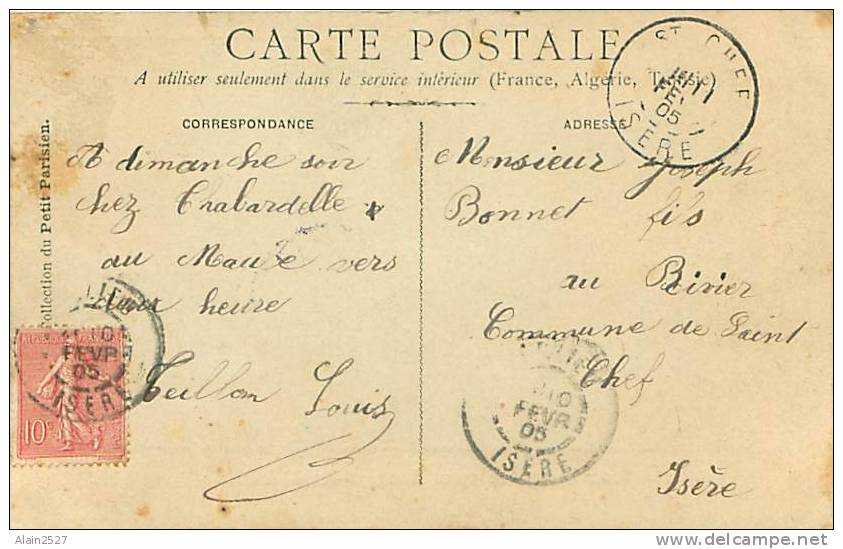 CARTE POSTALE
A utiliser seulement dans le service intérieur (France, Algérie, Tunisie)
CORRESPONDANCE
A dimanche soir
chez Chabardelle
au Mauve vers
heure
Teillon Louis
ADRESSE
Monsieur Joseph
Bonnet fils
au Rivier
Commune de Saint
Chef
Isère
Collection du Petit Parisien.
ST CHEF
11
FEV
05
ISERE
10
FEVR
05
ISERE
10
FEVR
05
ISERE
10c
Alain2527
delcampe.net